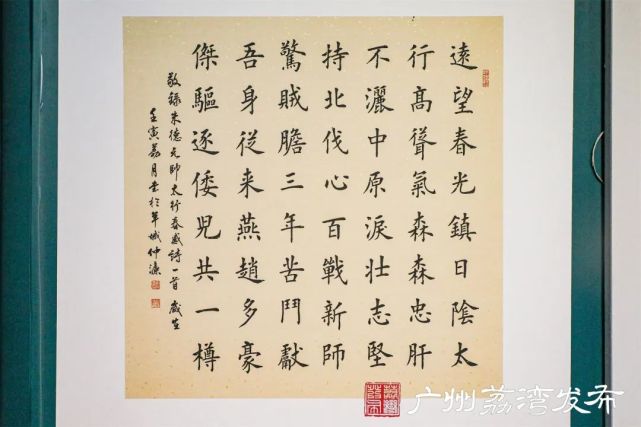 遠望春光鎮日陰太
行髙聳氣森森忠肝
不灑中原淚壯志堅
持北伐心百戰新師
驚賊膽三年苦鬥獻
吾身從来燕趙多豪
傑驅逐倭児共一樽
敬録朱德元帥太行春感詩一首
壬寅荔月書於羊城仲濂
广州荔湾发布